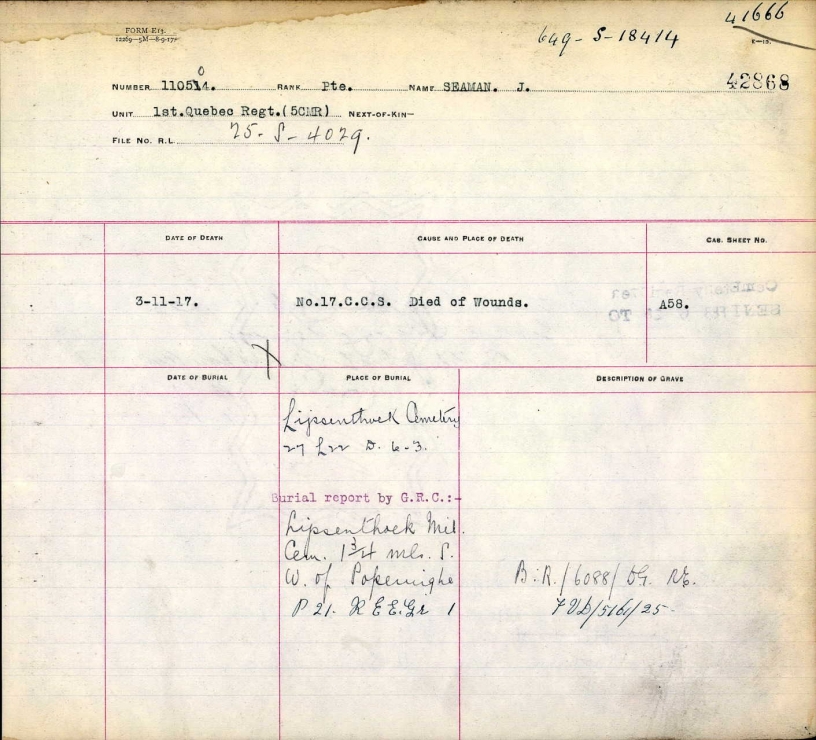 41666
FORM E13.
12269—5M—8-9-17.
649-S-18414
E—13.
NUMBER 110514. 0 RANK Pte. NAME SEAMAN. J.
42868
UNIT 1st.Quebec Regt.(5CMR) NEXT-OF-KIN—
FILE No. R.L. 25-S-4029.
DATE OF DEATH CAUSE AND PLACE OF DEATH CAS. SHEET No.
3-11-17. No.17.C.C.S. Died of Wounds. A58.
DATE OF BURIAL PLACE OF BURIAL DESCRIPTION OF GRAVE
Lijssenthoek Cemetery
27 L22 D. 6-3.
Burial report by G.R.C.:-
Lijssenthoek Mil.
Cem. 1 3/4 mls. S.
W. of Poperinghe
P 21. R E E. Gr 1
B.R./6088/
/5161/25-